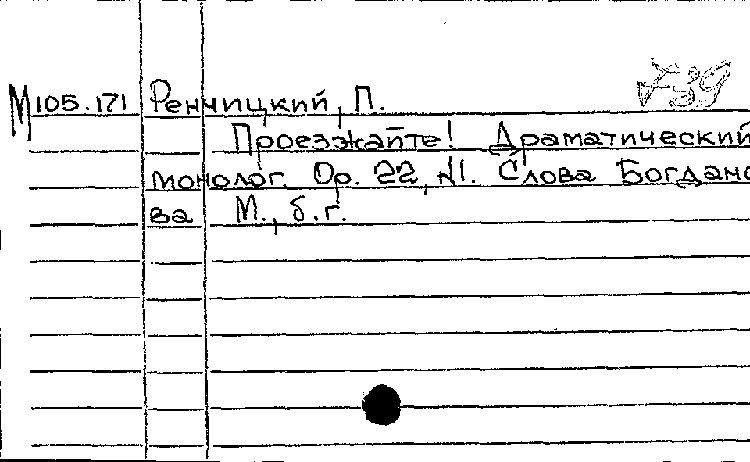 739
М105.171 Ренчицкий, П.
Проезжайте! Драматический
монолог. Ор. 22, №1. Слова Богдано
ва М., б.г.